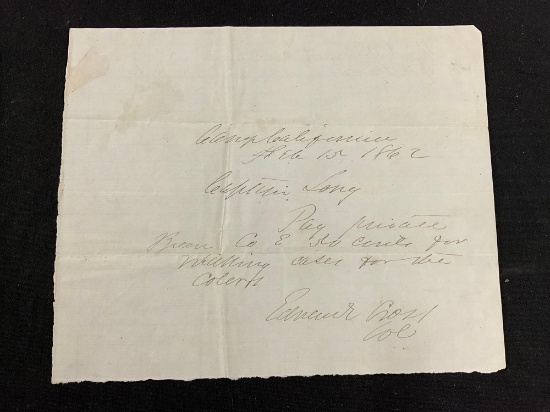 Camp California
Feb 15, 1862
Captain Long
Pay private
Co E cents for
making cases for the
Colors
Edward Cross
Col